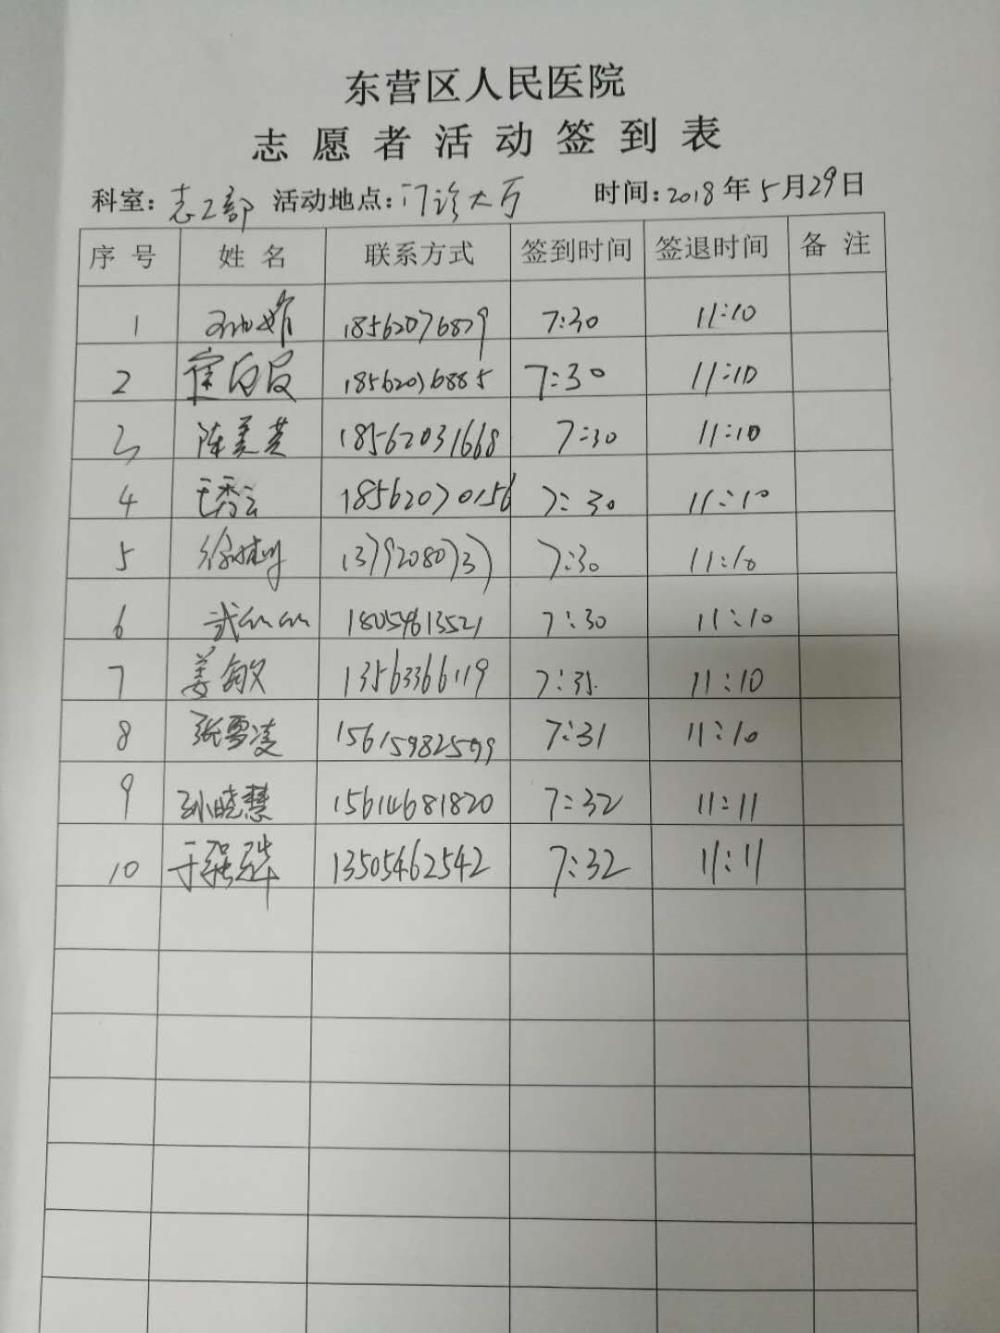 东营区人民医院
志愿者活动签到表
科室: 志工部 活动地点: 门诊大厅 时间: 2018年5月29日
序号 姓名 联系方式 签到时间 签退时间 备注
1 7:30 11:10
2 7:30 11:10
3 陈美芸 18562031668 7:30 11:10
4 王秀云 18562070156 7:30 11:10
5 7:30 11:10
6 武灿灿 18054613521 7:30 11:10
7 姜敏 13563366119 11:10
8 张雪凌 15615982599 7:31 11:10
9 孙晓慧 15614681820 7:32 11:11
10 于强 13505462542 7:32 11:11